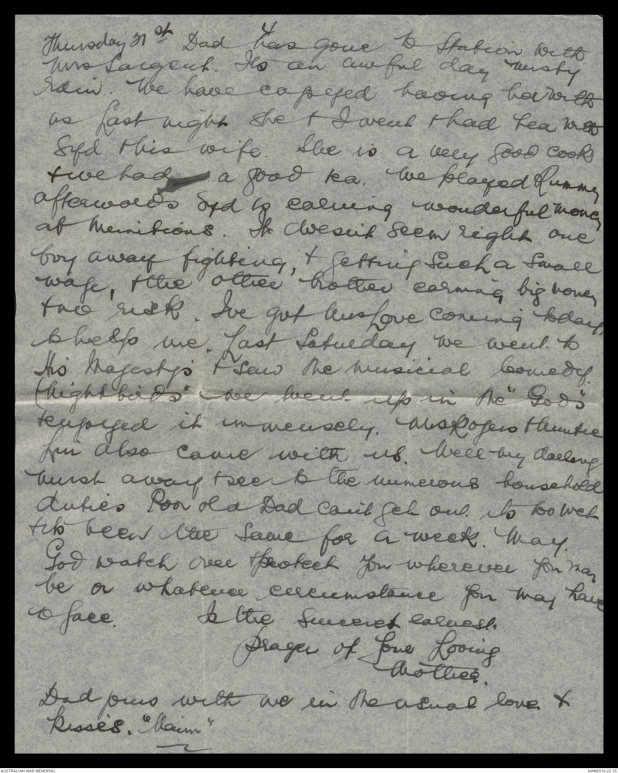 4
Thursday 21st Dad has gone to Station with
Mrs Sargent. Its an awful day misty
rain. We have enjoyed having her with
us last night she & I went & had tea with
Syd & his wife. She is a very good cook
& we had a good tea. We played Rummy
afterwards Syd is earning wonderful money
at Munitions. It doesn't seem right one
boy away fighting, & getting such a small
wage, & the other brother earning big money
& no risk. I've got Mrs Love coming today,
to help me. Last Saturday we went to
His Majestys & saw the musical Comedy.
(Nightbirds" we went up in the "Gods"
& enjoyed it immensely. Mrs Rogers & Auntie
also came with us. Well my darling
must away & see to the numerous household
duties Poor old Dad cant get out its too wet
& its been the same for a week. May
God watch over & protect you wherever you may
be or whatever circumstance you may have
to face. Is the sincerest earnest
prayer of Your Loving
Mother.
Dad joins with me in the usual love &
kisses. "Maim"
AUSTRALIAN WAR MEMORIAL